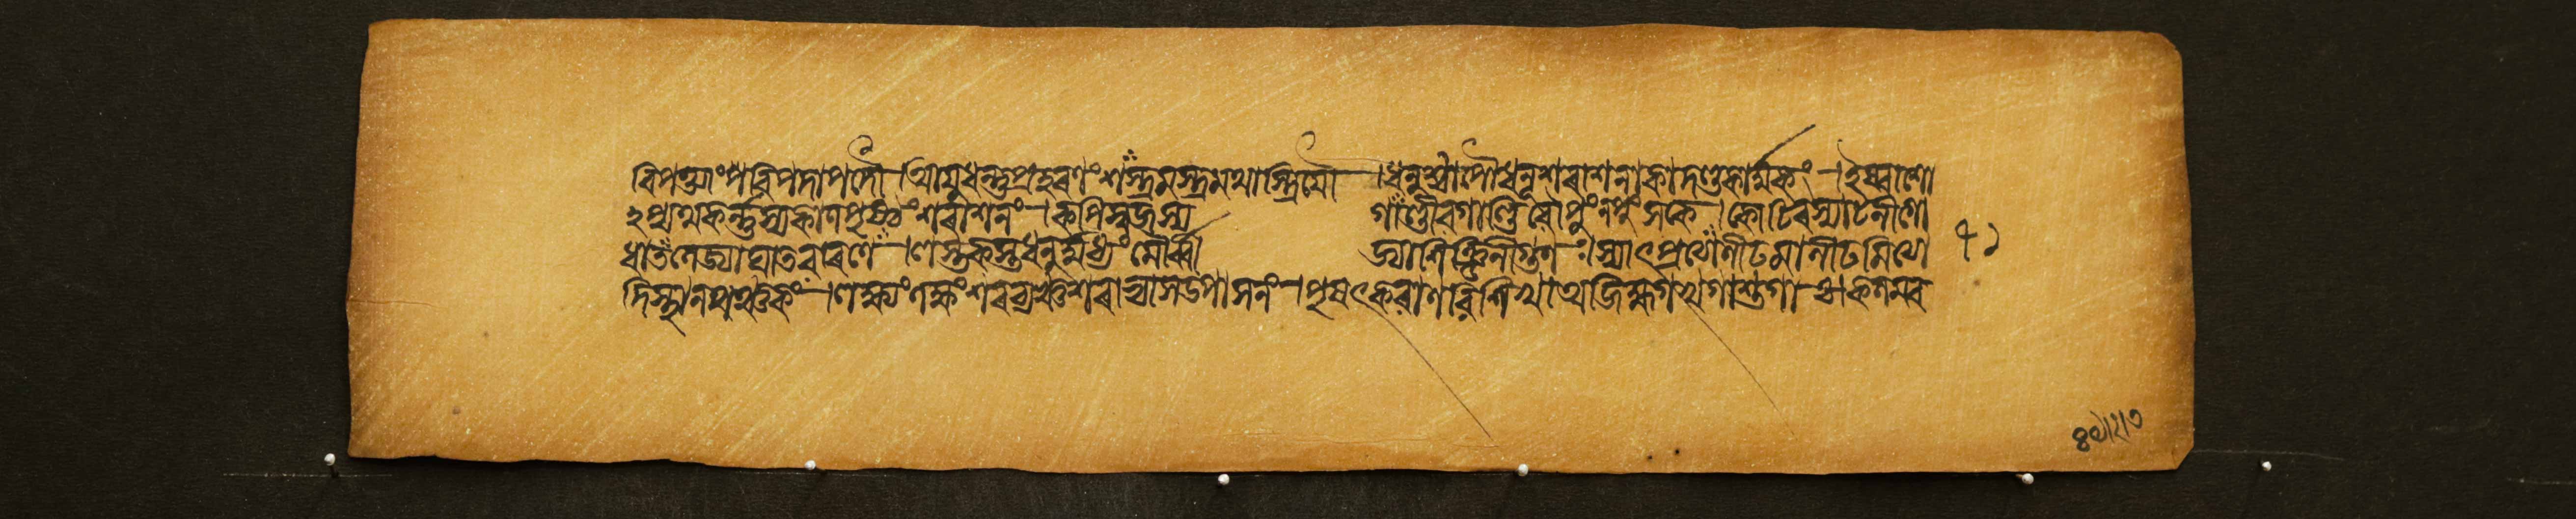 বিপত্ত্যাংবিপদাপদৌ।আয়ুধন্তুপ্ৰহৰণংশস্ত্ৰমস্ত্ৰমথাস্ত্ৰিয়ৌ।ধনুশ্চাপৌধন্বশৰাশনকোদণ্ডকাৰ্ম্মুকং।ইষ্বাশো
ঽপ্যথকৰ্ন্নস্যকালপৃষ্ঠংশৰাশনং।কপিধ্বজস্য গাণ্ডীবগাণ্ডিবৌপুংনপুংসকৌ।কোটিৰস্যাটনীগো
ধেতলেজ্যাঘাতবাৰণে।লস্তকস্তুধনুৰ্মধ্যং মৌৰ্ব্বী জ্যাশিঞ্জিনীগুণঃ।স্যাৎপ্ৰত্যালীঢমালীঢমিত্যা ৭১
দিস্থানপঞ্চকং।লক্ষ্যংলক্ষংশৰব্যঞ্চশৰাভ্যাসউপাসনং।পৃষৎকবাণবিশিখাঅজিহ্মগখগাশুগাঃ।কলম্ব